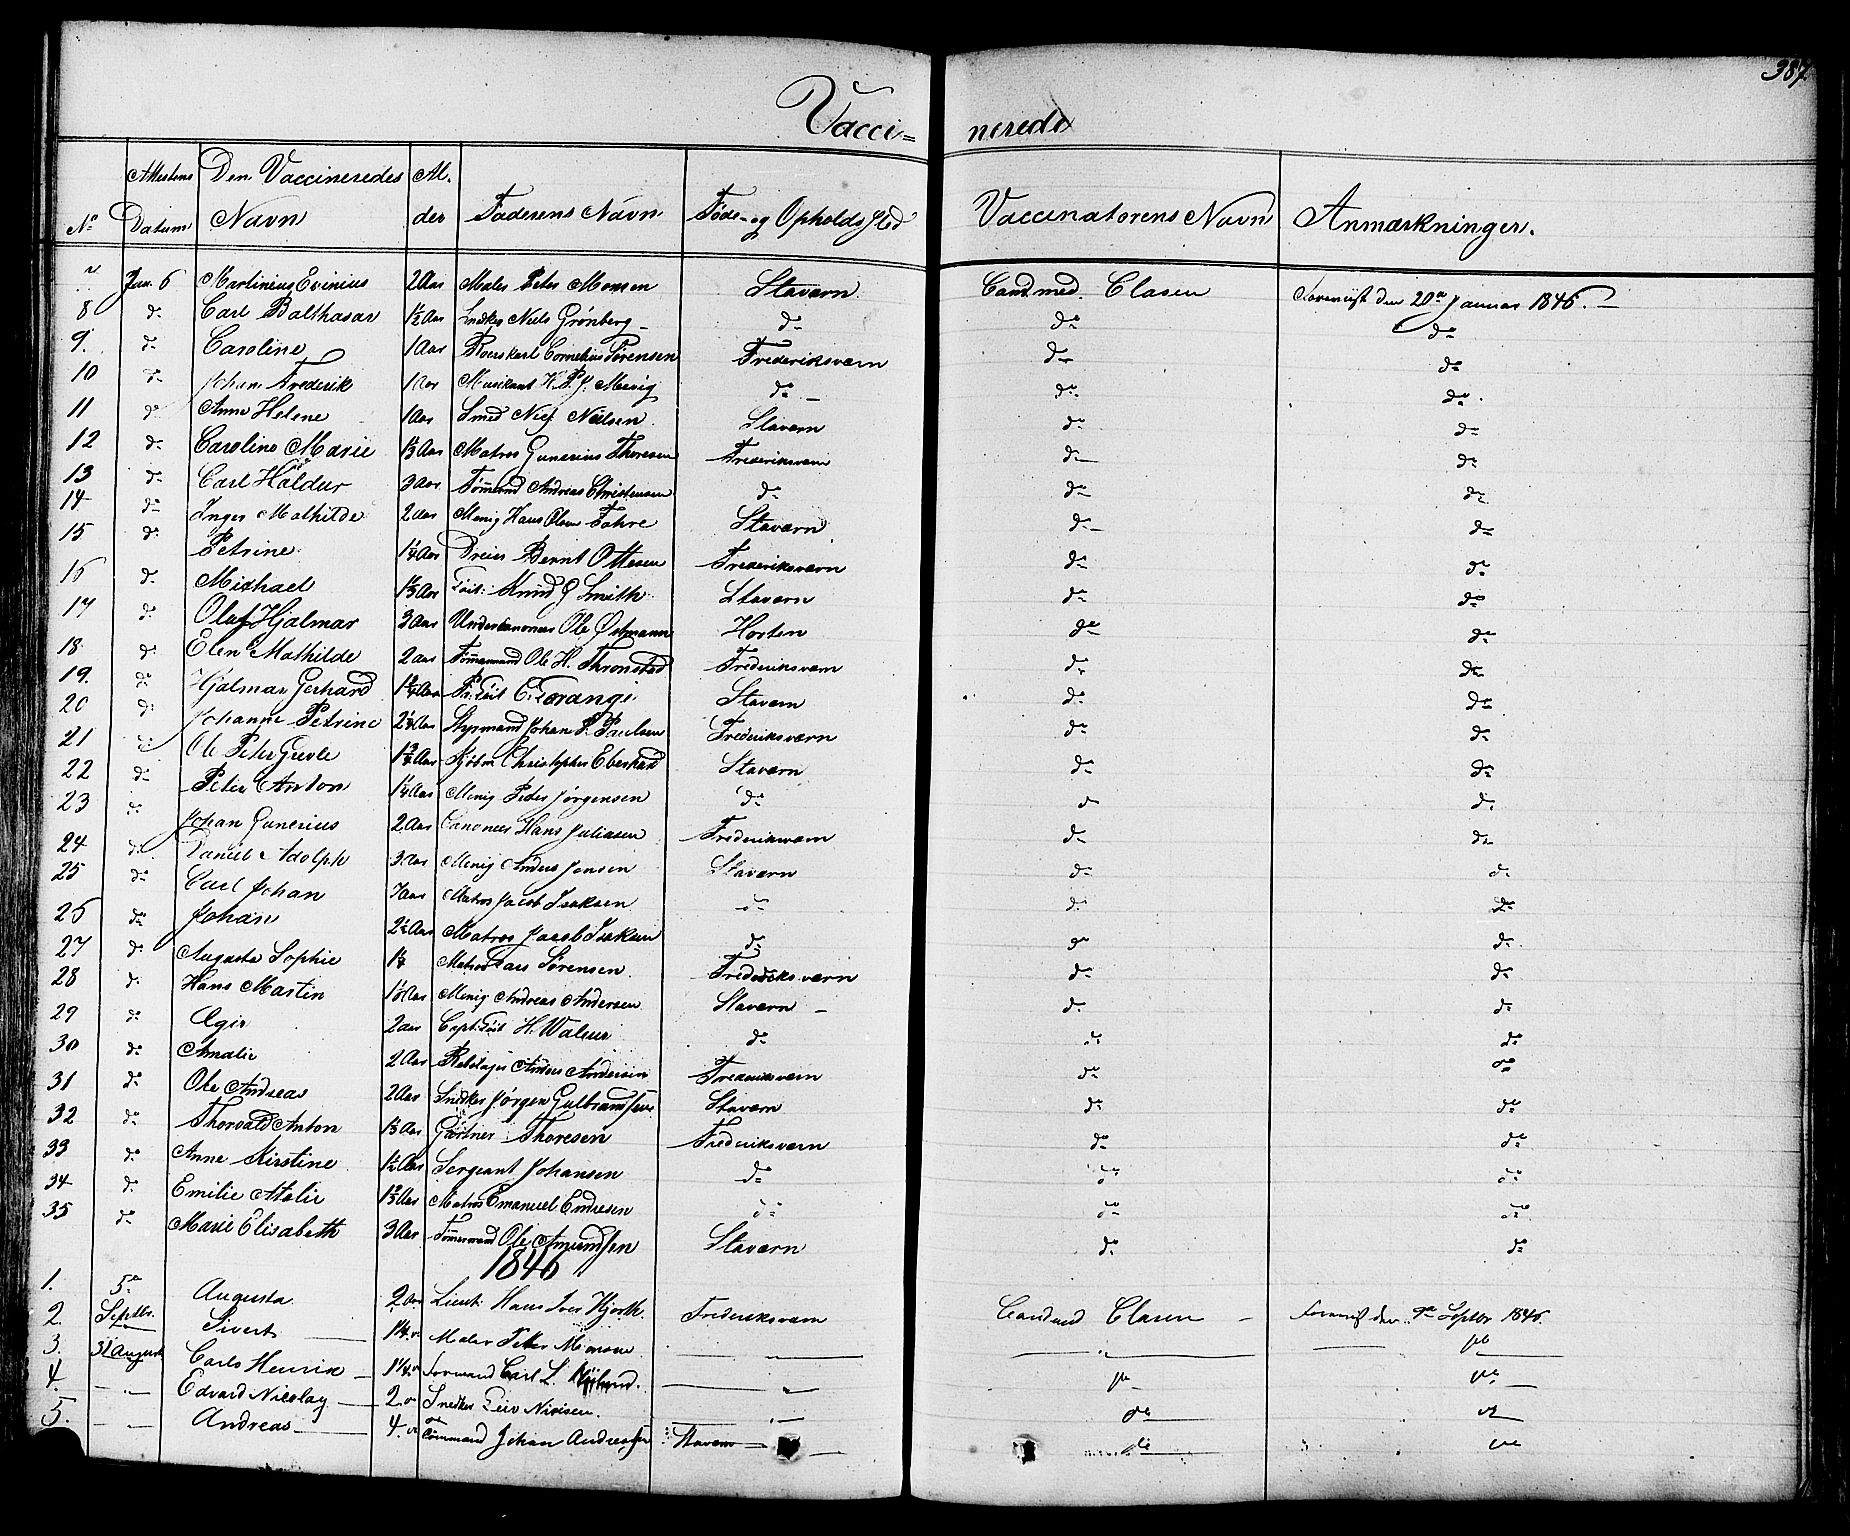 387.
Vacci= nerede
Attestens Den Vaccineredes Al.
No Datum Navn der Faderens Navn Føde- og Opholds Sted Vaccinatorens Navn Anmærkninger.
7 Jan. 6 Martinius Evinius 2 Aar Maler Peter Monsen Stavern Cand. med. Clasen Foreviist den 20de Januar 1846.
8 do Carl Balthasar 1½ Aar Snedker Niels Grønberg do do do
9. do Caroline 1 Aar Roerskarl Cornelius Sørensen Frederiksværn do do
10 do Johan Frederik 1 Aar Musikant H. P. J. Mevig do do do
11 do Anne Helene 1 Aar Smed Nielsen Stavern do do
12 do Caroline Marie Aar Matros Gunerius Thoresen Frederiksværn do do
13 do Carl Haldur 3 Aar Tømmand Andreas Christensen do do do
14 do Inger Mathilde 2 Aar Menig Hans Olsen Stavern do do
15 do Petrine 1¼ Aar Dreier Bernt Ottesen Frederiksværn do do
16 do Michael Aar Smith Stavern do do
17 do Olaf Hjalmar 3 Aar Underkanoneer Ole Østmann Horten do do
18. do Elen Mathilde 2 Aar Tømmermand Ole H. Thronstad Frederiksværn do do
19. do Hjalmar Gerhard Aar Pr: Löit C. Stavern do do
20 do Johanne Petrine Aar Styrmand Johan P. Paulsen Frederiksværn do do
21 do Ole Peter Grevle Aar Kjøbm Christopher Eberhard Stavern do do
22 do Peter Anton 1¼ Aar Menig Peter Jørgensen do do do
23 do Johan Gunerius 2 Aar Canoneer Hans Juliusen Frederiksværn do do
24 do Daniel Adolph 3 Aar Menig Anders Jensen Stavern do do
25 do Carl Johan 7 Aar Matros Jacob Isaksen do do do
26 do Johan 2½ Aar Matros Jacob Isaksen do do do
27 do Augusta Sophie Matros Lars Sørensen Frederiksværn do do
28 do Hans Martin Aar Menig Andreas Andersen Stavern do do
29 do Ægir 2 Aar Capt: Löit H. do do do
30 do Amalie 2 Aar Rebslager Anders Andersen Frederiksværn do do
31 do Ole Andreas 2 Aar Snedker Jørgen Gulbrandsen Stavern do do
32 do Thorvald Anton Aar Gartner Thoresen Frederiksværn do do
33 do Anne Kirstine 1½ Aar Sergeant Johansen do do do
34 do Emilie Atalie Aar Matros Emanuel Endresen do do do
35 do Marie Elisabeth 3 Aar Tømmermand Ole Amundsen Stavern do do
1846
1. 5te Augusta 2 Aar Lieut: Hans Iver Hjorth Frederiksværn Cand med Clasen Foreviist den 9de Septbr 1846.
2. Septbr. Sivert 1¼ Maler Peter Monsen — " — — " — do
3. 31 August Carls Henrik 1¼ Formand Carl L. — " — do do
4. — " — Edvard Nicolay 2 Snedker Nielsen. — " — do do
5. — " — Andreas 4 Tømmand Johan Andreasen Stavern do do